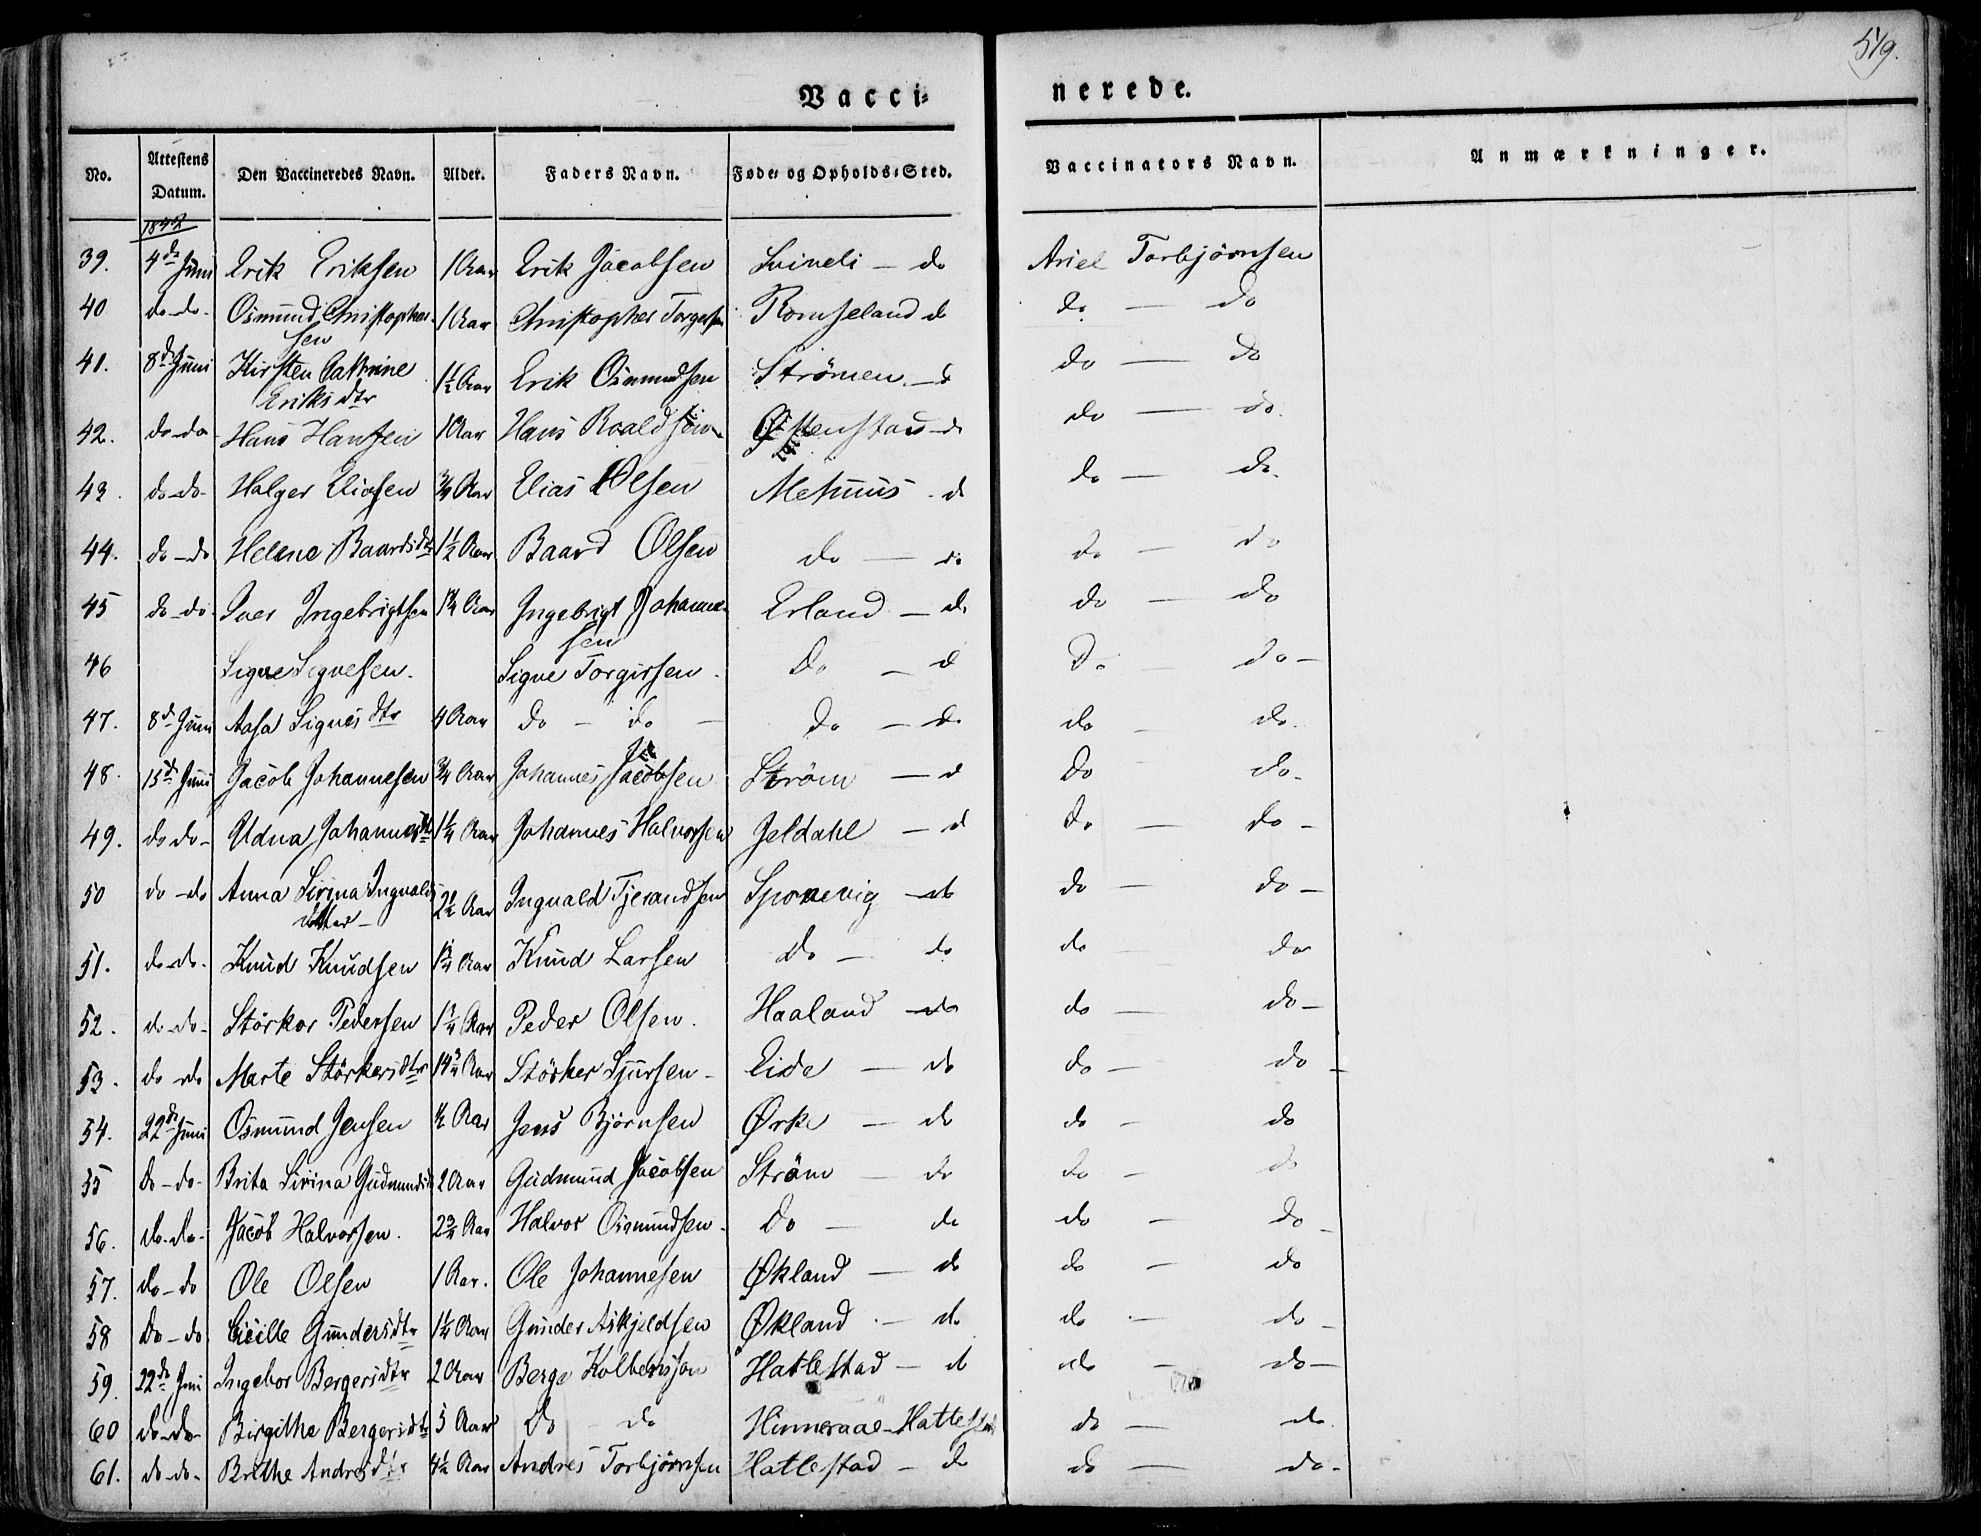 519.
Vacci=
nerede.
No. Attestens Datum. Den Vaccineredes Navn. Alder. Faders Navn. Føde= og Opholds=Sted. Vaccinators Navn. Anmærkninger.
1842
39. 4de Juni Erik Eriksen 1 Aar Erik Jacobsen Svineli - do Ariel Torbjörnsen
40 do-do- Osmund Christopher- 1 Aar Christopher Torgersen Romseland do do - do
sen
41. 8de Juni Kirsten Cathrine 1½ Aar Erik Osmundsen Strömen - d do - do
Eriksdtr
42. do-do Hans Hansen 1 Aar Hans Roaldsen Østenstad - d do - do.
43. do-do- Holger Eliasen ¾ Aar Elias Olsen Mehuus - d do - do
44. do-do Helene Baardsdtr 1½ Aar Baard Olsen do - do do - do
45 do-do- Iver Ingebrigtsen 1¼ Aar Ingebrigt Johanne- Erland - do do - do
sen
46 Signe Signesen. Signe Torgersen. Do - d Do - do -
47. 8de Juni Aasa Signesdtr 4 Aar Do - do - Do - do do - do.
48. 15de Juni Jacob Johannesen ¾ Aar Johannes Jacobsen Ström - d Do do.
49. do do- Udna Johannesdtr 1¼ Aar Johannes Halvorsen Jeldahl - d do - do -
50 do-do Anna Sirina Ingvalds 2½ Aar Ingvald Tjerandsen Sponevig - do do - do -
datter -
51. do-do- Knud Knudsen 1¾ Aar Knud Larsen do - do do - do
52. do-do- Störkor Pedersen 1¼ Aar Peder Olsen. Haaland - do do - do -
53. do-do Marte Störkersdtr 14¾ Aar Störker Sjursen - Eide - do do - do -
54. 22de Juni Osmund Jensen ½ Aar Jens Björnsen Ørke - do do - do
55 do-do- Brita Sirina Gudmundsdtr 2 Aar Gudmund Jacobsen Ström - do do - do
56. do-do- Jacob Halvorsen. 2¾ Aar Halvor Osmundsen - Do - do do - do -
57. do-do Ole Olsen 1 Aar. Ole Johannesen Økland - do do - do
58 Do-do Cicille Gundersdtr 1¼ Aar Gunder Askjeldsen Økland - do do - do -
59. 22de Juni Ingebor Bergersdtr 2 Aar Berge Kolbensson Hatlestad - do do - do -
60 do-do- Birgithe Bergersdtr 5 Aar Do - do Hinneraae-Hatlestad do - do
61. do-do- Brithe Andresdtr 4½ Aar Andres Torbjörnsen Hatlestad - do do - do -